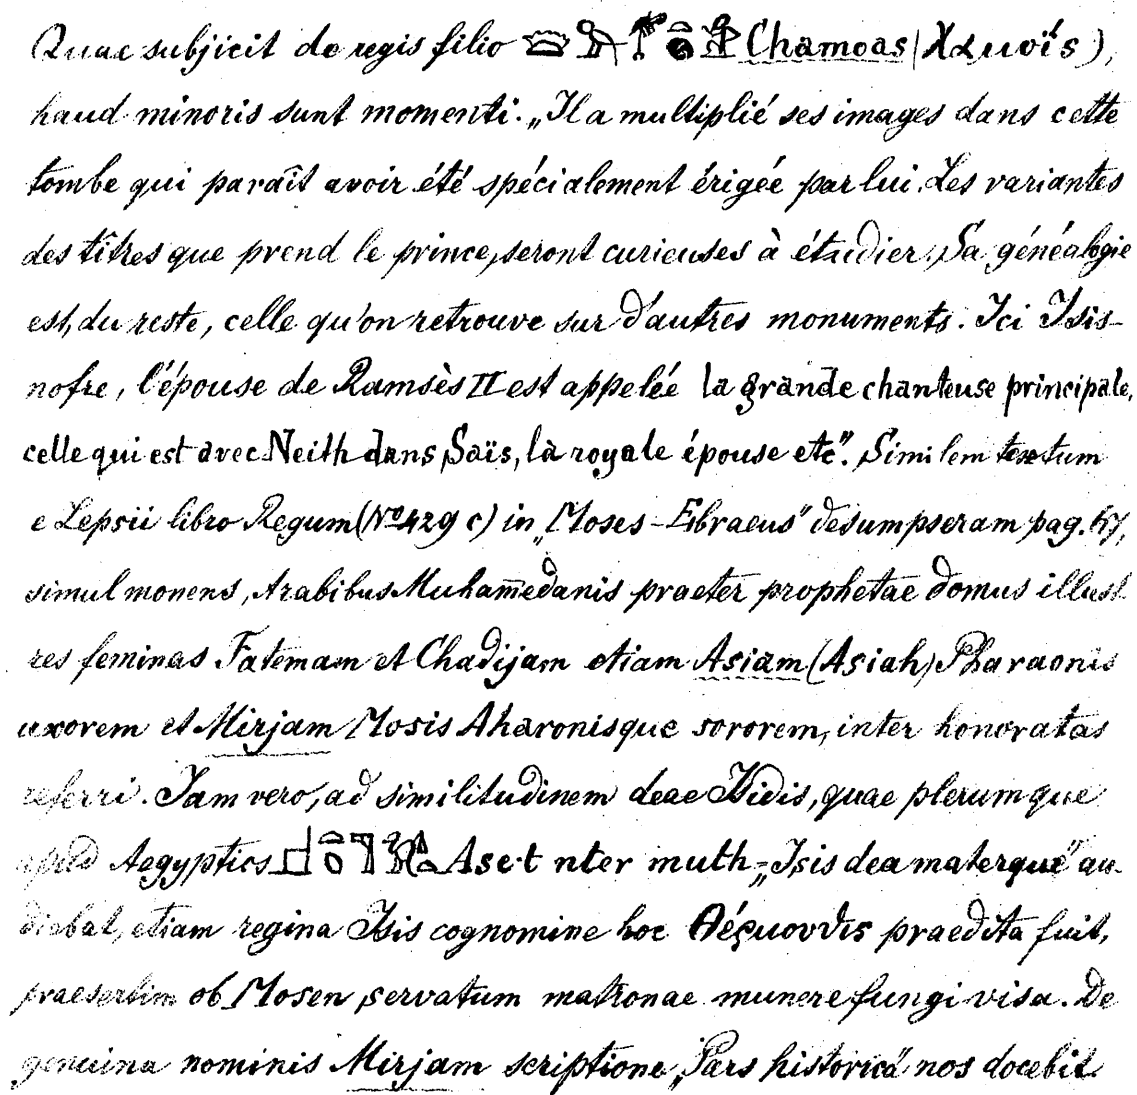 Quae subjicit de regis filio Chamoas (Χαμοΐς),
haud minoris sunt momenti. „Il a multiplié ses images dans cette
tombe qui paraît avoir été spécialement érigée par lui. Les variantes
des titres que prend le prince, seront curieuses à étudier. Sa généalogie
est, du reste, celle qu'on retrouve sur d'autres monuments. Ici Isis-
nofre, l'épouse de Ramsès II est appelée la grande chanteuse principale,
celle qui est avec Neith dans Saïs, là royale épouse etc“. Similem textum
e Lepsii libro Regum (Nº 429 c) in „Moses-Ebraeus“ desumpseram pag.
simul monens, Arabibus Muham̅edanis praeter prophetae domus illust
res feminas Fatemam et Chadijam etiam Asiam (Asiah) Pharaonis
uxorem et Mirjam Mosis Aharonisque sororem, inter honoratas
referri. Iam vero, ad similitudinem deae Isidis, quae plerumque
apud Aegyptios Ase·t nter muth „Isis dea materque“ au-
diebat, etiam regina Isis cognomine hoc praedita fuit,
praesertim ob Mosen servatum matronae munere fungi visa. De
genuina nominis Mirjam scriptione „Pars historica“ nos docebit.